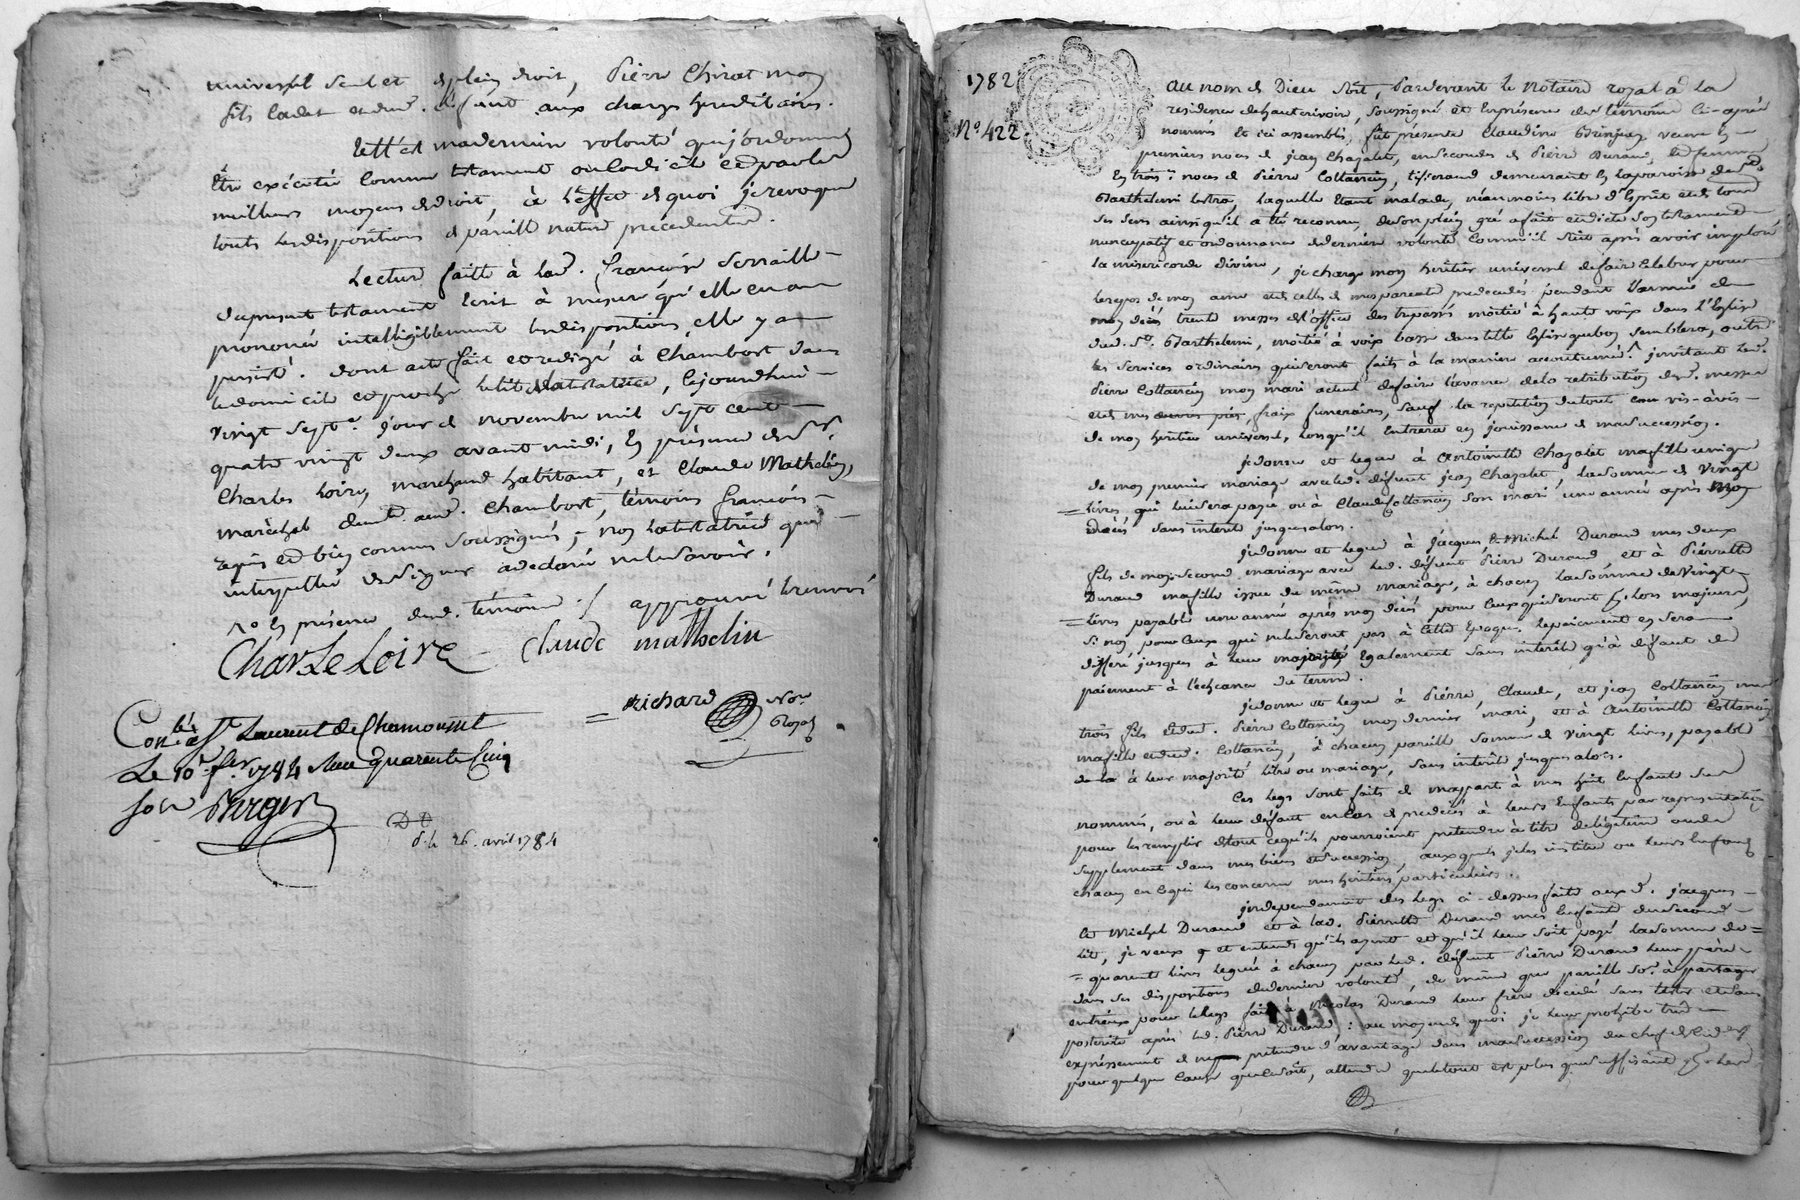 universel seul et de plein droit, Pierre Chirat mon
fils cadet et dud. défunt aux charges hereditaires.
telle est ma derniere volonté que j'ordonne
être exécutée comme testament ou codicile et par les
meilleurs moyens de droit, à l'effet de quoi je revoque
touts les dispositions de pareille nature precedentes.
Lecture faitte à lad. françoise
du present testament ecrit à mesure qu'elle en a
prononcé intelligiblement les dispositions, elle y a
persisté. dont acte fait et redigé à Chambost dans
le domicile et proche le lit de la testatrice, cejourdhui
vingt sept.e jour de novembre mil sept cent
quatre vingt deux avant midi, en présence de Sr.
Charles Loire, marchand habitant, et Claude Mathelin,
maréchal dud. Chambost, témoins françois
requis et bien connus soussignés, non la testatrice qui
interpellée de signer a declaré ne le savoir,
en présence desd. témoins ./. approuvé le renvoi
Charle Loire Claude mathelin
= Richard No.re
Royal
Con.lé à St. Laurent de Chamousset
Le 10 f.er 1784 Reçu quarente Cinq
sols Berger
d. le 26. avril 1784
1782
N.º 422
au nom de Dieu soit, Pardevant le Notaire royal à la
residence de hauterivoire, soussigné et en présence des témoins ci-après
nommés et ici assemblés, fut présente Claudine veuve en
premiers noces de jean Chazalet, en secondes de Pierre Durand, et femme
en trois.es noces de Pierre Collancin, tisserand demeurant en la paroisse de St.
Barthelemi lestra, laquelle étant malade, néanmoins libre d'Esprit et de touts
ses sens ainsi qu'il a été reconnu, de son plein gré a fait et dicté son testament
nuncupatif et ordonnance de derniere volonté comme il suit après avoir imploré
la misericorde divine, je charge mon heritier universel de faire celebrer pour
le repos de mon ame et de celles de mes parents predecedés pendant l'année de
mon décès trente messes de l'office des trepassés moitié à haute voix dans l'Eglise
dud. St. Barthelemi, moitié à voix basse dans telle Eglise que bon semblera, outre
les services ordinaires qui seront faits à la maniere accoutumée. invitant led.
Pierre Collancin mon mari actuel de faire l'avance de la retribution desd. messes
et de mes frais funeraires, sauf la repetition du tout vis-à-vis
de mon heritier universel, lorsqu'il entrera en jouissance de ma succession.
je donne et legue à Antoinette Chazalet ma fille unique
de mon premier mariage avec led. défunt jean Chazalet, la somme de vingt
= livres qui lui sera payée, ou à Claude Collancin son mari une année après mon
décès sans intérêt jusqu'alors.
je donne et legue à Jacques et Michel Durand mes deux
fils de mon second mariage avec led. défunt Pierre Durand et à Pierrette
Durand ma fille issue du même mariage, à chacun la somme de vingt
= livres payable une année après mon décès pour ceux qui seront pour lors majeurs,
Si non, pour ceux qui ne le seront pas à cette Epoque, le paiement en sera
differé jusques à leur majorité également sans intérêts qu'à défaut de
paiement à l'échéance du terme.
je donne et legue à Pierre, Claude, et jean Collancin mes
trois fils et dud. Pierre Collancin mon dernier mari, et à Antoinette Collancin
ma fille et dud. Collancin, à chacun pareille somme de vingt livres, payable
de la à leur majorité libre ou mariage, sans intérêt jusqu'alors.
Ces legs sont faits de ma part à mes huit Enfants sus
nommés, ou à leur défaut en cas de predecès à leurs Enfants par representation
pour les remplir de tout ce qu'ils pourroient pretendre à titre de légitime ou de
supplement dans mes biens et succession, auxquels je les institue ou leurs Enfants
chacun en ce qui les concerne mes héritiers particuliers.
independament des legs ci-dessus faits auxd. jacques
et Michel Durand et à lad. Pierrette Durand mes Enfants du second
lit, je veux et entends qu'ils ayent et qu'il leur soit payé la somme de =
= quarente livres leguée à chacun par led. défunt Pierre Durand leur père
dans ses dispositions de derniere volonté, de même que pareille so.e à partager
entr'eux pour le legs fait à Nicolas Durand leur frère decedé sans tester et sans
posterité après led. Pierre Durand: au moyen de quoi je leur prohibe très
expréssement de ne pretendre d'avantage dans ma succession du chef de leurd.
pour quelque cause que ce soit, attendu que le tout est plus que suffisant